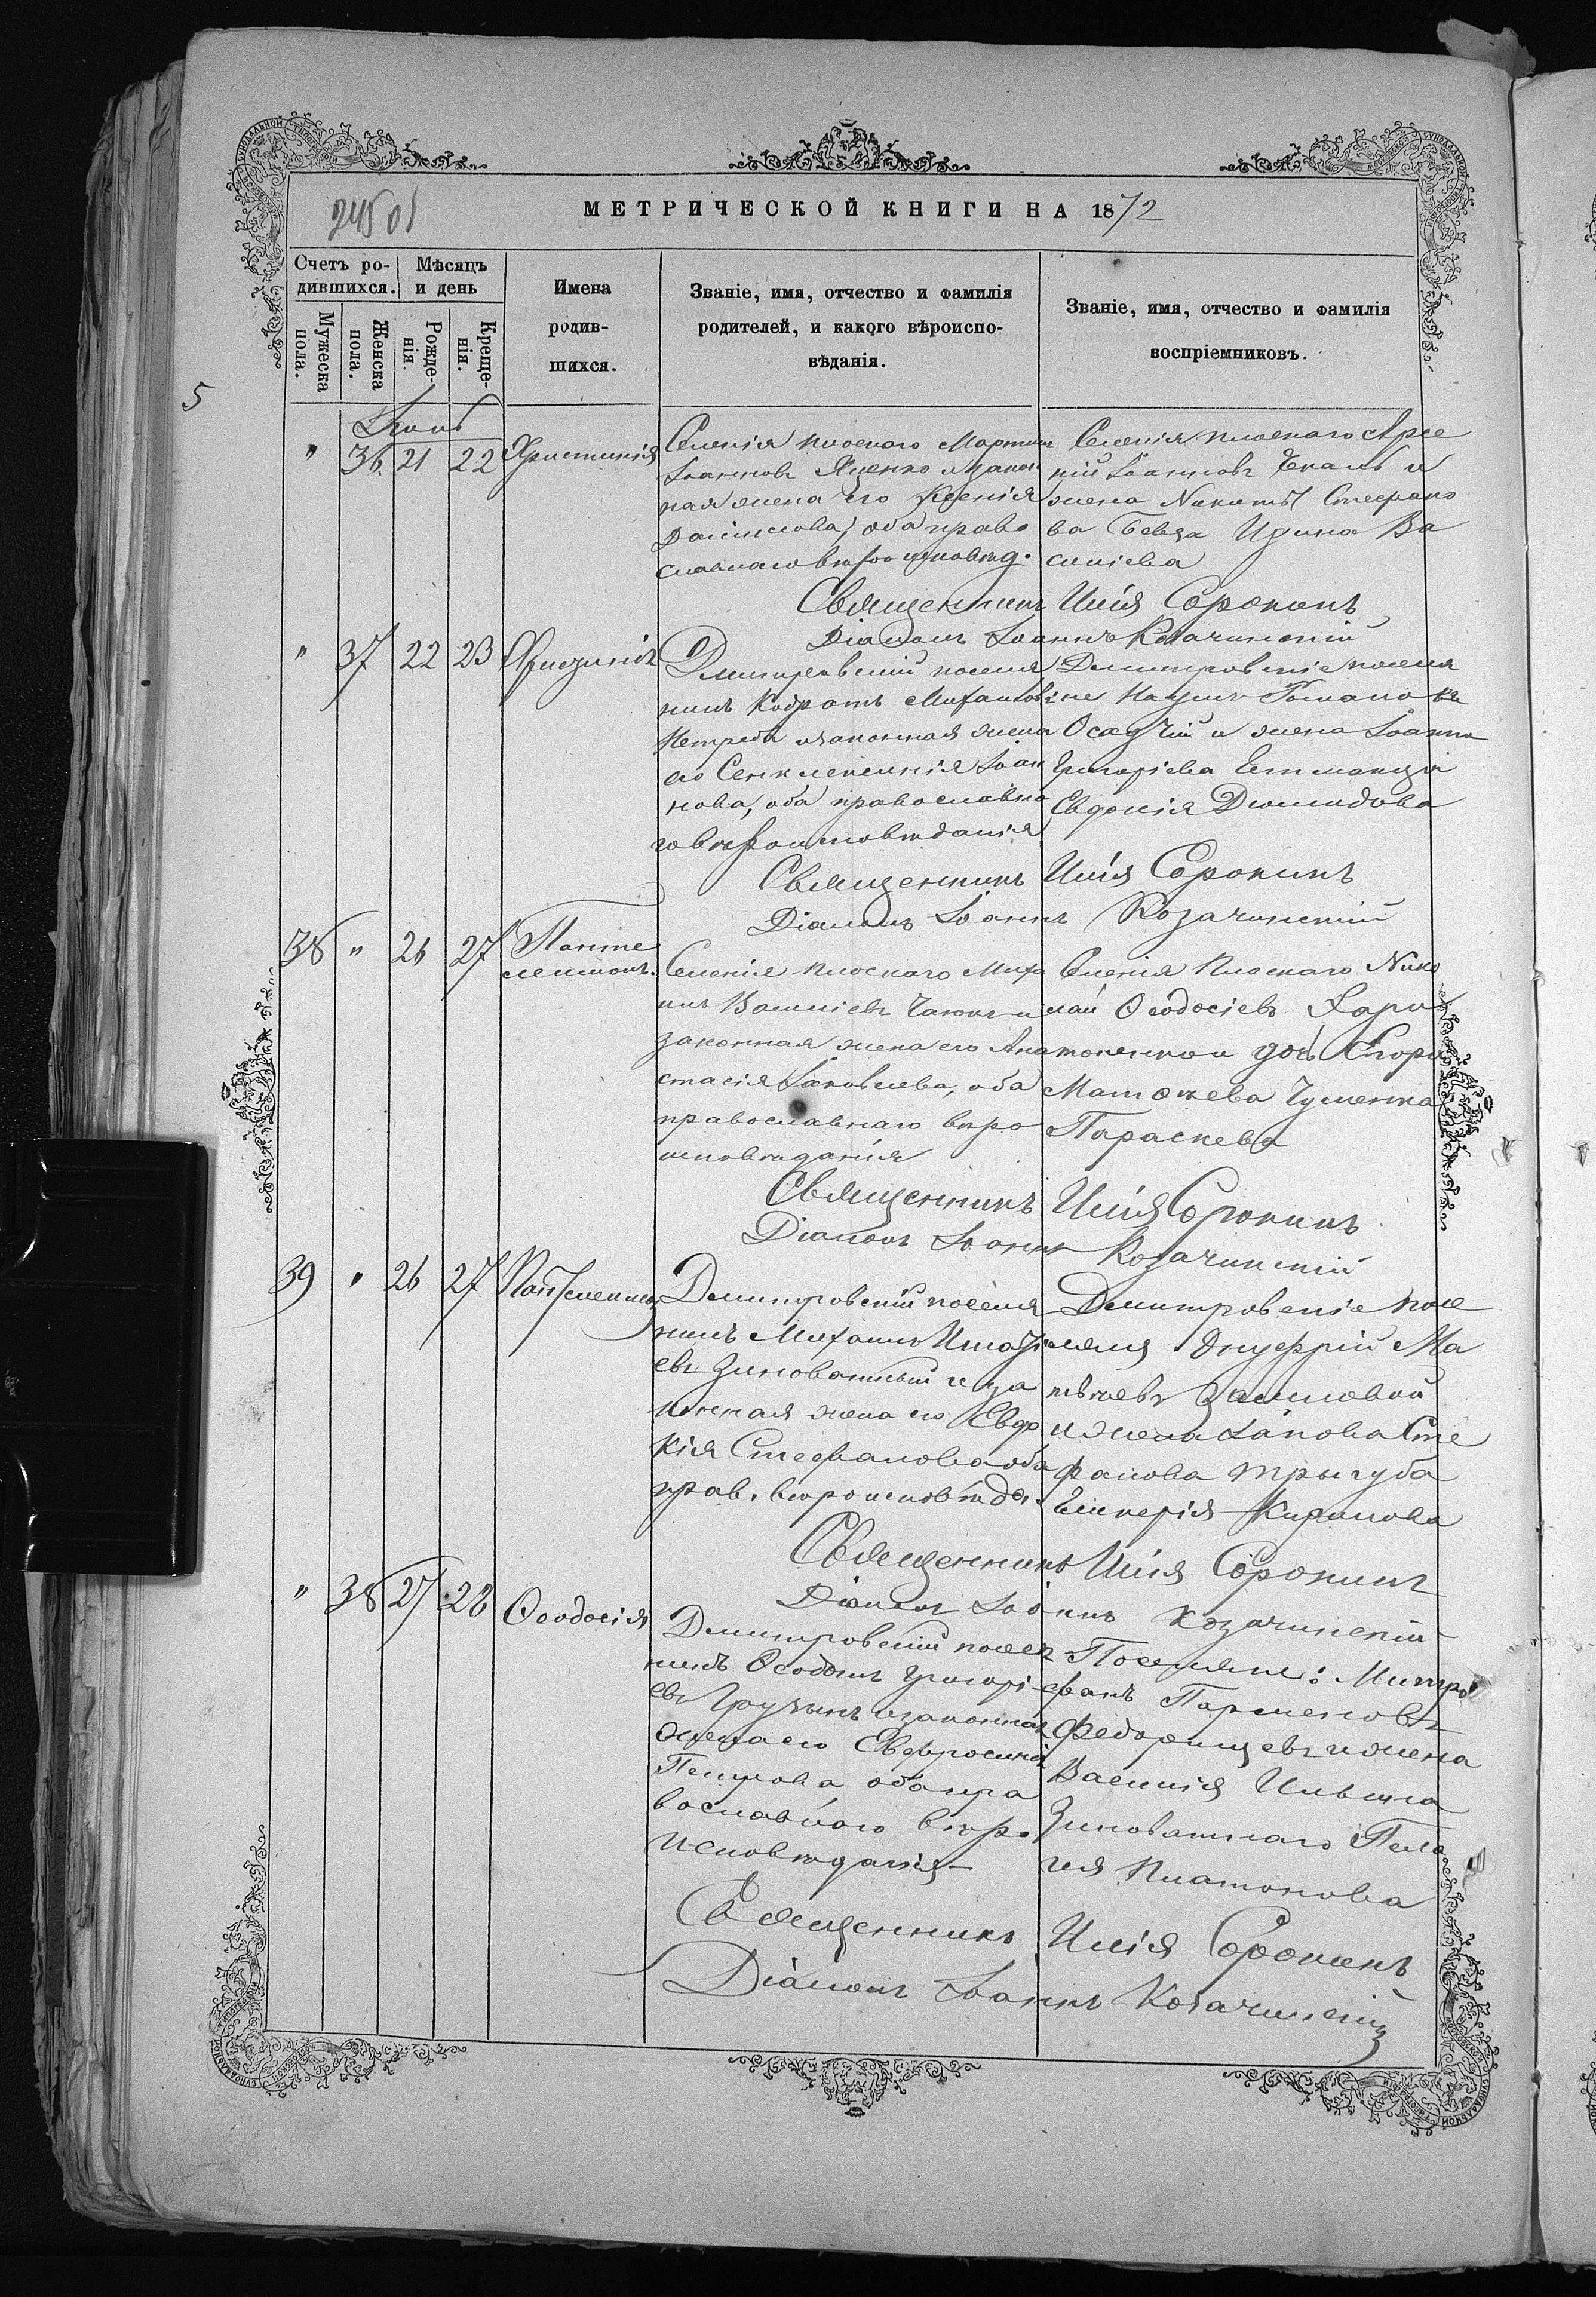 МЕТРИЧЕСКОЙ КНИГИ НА 1872
Счетъ ро-
дившихся.
Мѣсяцъ
и день
Мужеска
пола.
Женска
пола.
Рожде-
нія.
Креще-
нія.
Имена
родив-
шихся.
Званіе, имя, отчество и фамилія
родителей, и какого вѣроиспо-
вѣданія.
Званіе, имя, отчество и фамилія
воспріемниковъ.
5
"
36
21
22
Христинія
Селенія плоскаго Мартинъ
Іоанновъ Яценко и закон
ная жена его Ксенія
Даніилова, оба право
славнаго вѣроисповѣд.
Селенія плоскаго Арсе
ній Іоанновъ и
жена Никиты Стефано
ва Бевза Ирина Ва
силіева
Священникъ Илія Сорокинъ
Діаконъ Іоаннъ Козачинскій
"
37
22
23
Дмитровскій поселя
нинъ Кодратъ Михаиловъ
Нетреба и законная жена
его Іоан
нова, оба православна
го вѣроисповѣданія
Дмитровскіе поселя
не Наумъ Романовъ
Осадчій и жена Іоанна
Григоріева
Евдокія Діомидова
Священникъ Илія Сорокинъ
Діаконъ Іоаннъ Козачинскій
38
"
26
27
Панте
леимонъ.
Селенія плоскаго Миха
илъ Василіевъ и
законная жена его Ана
стасія Іаковлева, оба
православнаго вѣро
исповѣданія
Селенія плоскаго Нико
лай Ѳеодосіевъ Хари
тоненко и дочь
Матѳѣева Чуменка
Параскева
Священникъ Илія Сорокинъ
Діаконъ Іоаннъ Козачинскій
39
"
26
27
Дмитровскій поселя
нинъ Михаилъ Игнаті
евъ Зиноватный и за
конная жена его Евдо
кія Стефанова оба
прав. вѣроисповѣда.
Дмитровскіе посе
ляня Онуфрій Ма
тѳѣевъ
и жена Іакова Сте
фанова Трыгуба
Гликерія
Священникъ Илія Сорокинъ
Діаконъ Іоаннъ Козачинскій
"
38
27
28
Ѳеодосія
Дмитровскій поселя
нинъ Григорі
евъ и законная
жена его Евфросинія
Петрова оба пра
вославнаго вѣро
исповѣданія
Поселяне: Митро
фанъ Парменовъ
и жена
Василія Ильина
Зиноватнаго Пела
гія Платонова
Священникъ Илія Сорокинъ
Діаконъ Іоаннъ Козачинскій